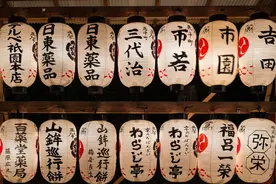 祇園本店
日東薬品
日東薬品
三代治
市若
市園
吉田
薬局
山鉾巡行餅
山鉾巡行餅
わらじ亭
わらじ亭
福呂一栄
弥栄